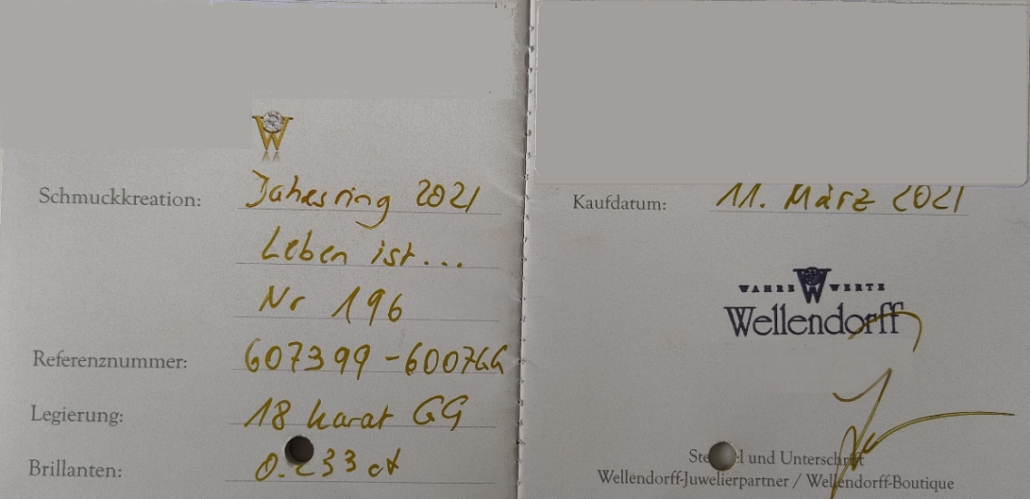 Schmuckkreation: Jahresring 2021
Leben ist...
Nr 196
Referenznummer: 607399-6007GG
Legierung: 18 karat GG
Brillanten: 0.233 ct
Kaufdatum: 11. März 2021
WAHRE WERTE
Wellendorff
und Unterschrift
Wellendorff-Juwelierpartner / Wellendorff-Boutique